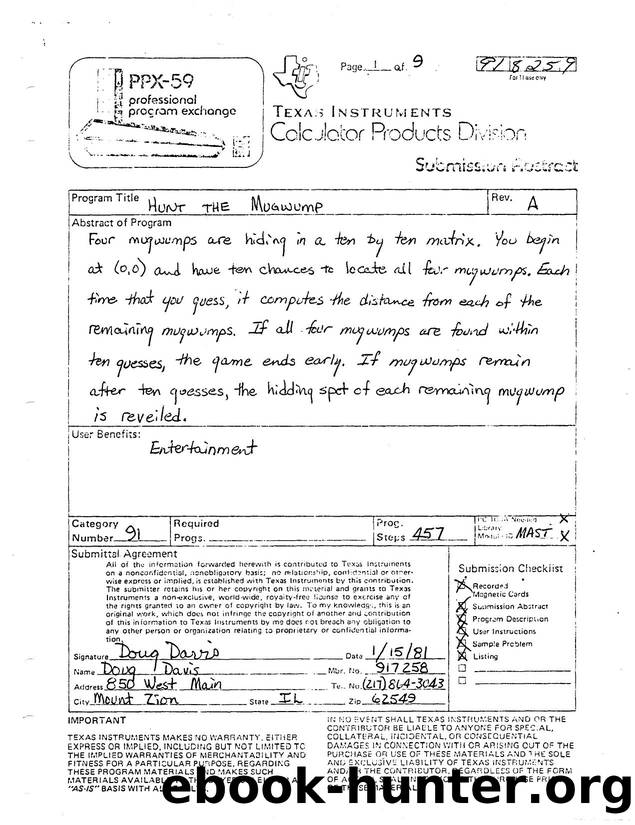 Page 1 of 9
918259
For TI use only
PPX-59
professional
program exchange
TEXAS INSTRUMENTS
Calculator Products Division
Submission Abstract
Program Title HUNT THE MUGWUMP
Rev. A
Abstract of Program
Four mugwumps are hiding in a ten by ten matrix. You begin
at (0,0) and have ten chances to locate all four mugwumps. Each
time that you guess, it computes the distance from each of the
remaining mugwumps. If all four mugwumps are found within
ten guesses, the game ends early. If mugwumps remain
after ten guesses, the hidding spot of each remaining mugwump
is reveiled.
User Benefits:
Entertainment
Category
Number 91
Required
Progs.
Prog.
Steps 457
Needed X
Library
MAST. X
Submittal Agreement
All of the information forwarded herewith is contributed to Texas Instruments
on a nonconfidential, nonobligatory basis; no relationship, confidential or other-
wise express or implied, is established with Texas Instruments by this contribution.
The submitter retains his or her copyright on this material and grants to Texas
Instruments a non-exclusive, world-wide, royalty-free license to exercise any of
the rights granted to an owner of copyright by law. To my knowledge, this is an
original work, which does not infringe the copyright of another and contribution
of this information to Texas Instruments by me does not breach any obligation to
any other person or organization relating to proprietary or confidential informa-
tion.
Signature Doug Davis Date 1/15/81
Name Doug Davis Mbr. No. 917258
Address 850 West Main Te. No. (217) 864-3043
City Mount Zion State IL Zip 62549
Submission Checklist
X Recorded
Magnetic Cards
X Submission Abstract
X Program Description
X User Instructions
X Sample Problem
X Listing
IMPORTANT
TEXAS INSTRUMENTS MAKES NO WARRANTY, EITHER
EXPRESS OR IMPLIED, INCLUDING BUT NOT LIMITED TO
THE IMPLIED WARRANTIES OF MERCHANTABILITY AND
FITNESS FOR A PARTICULAR PURPOSE, REGARDING
THESE PROGRAM MATERIALS AND MAKES SUCH
MATERIALS AVAILABLE
"AS-IS" BASIS WITH
IN NO EVENT SHALL TEXAS INSTRUMENTS AND OR THE
CONTRIBUTOR BE LIABLE TO ANYONE FOR SPECIAL,
COLLATERAL, INCIDENTAL, OR CONSEQUENTIAL
DAMAGES IN CONNECTION WITH OR ARISING OUT OF THE
PURCHASE OR USE OF THESE MATERIALS AND THE SOLE
AND EXCLUSIVE LIABILITY OF TEXAS INSTRUMENTS
THE CONTRIBUTOR, REGARDLESS OF THE FORM
ebook-hunter.org